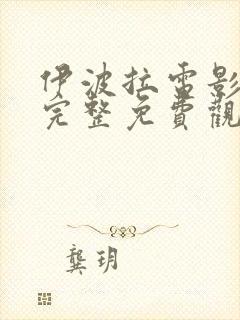 伊波拉雷影
完整免費觀
龔玥